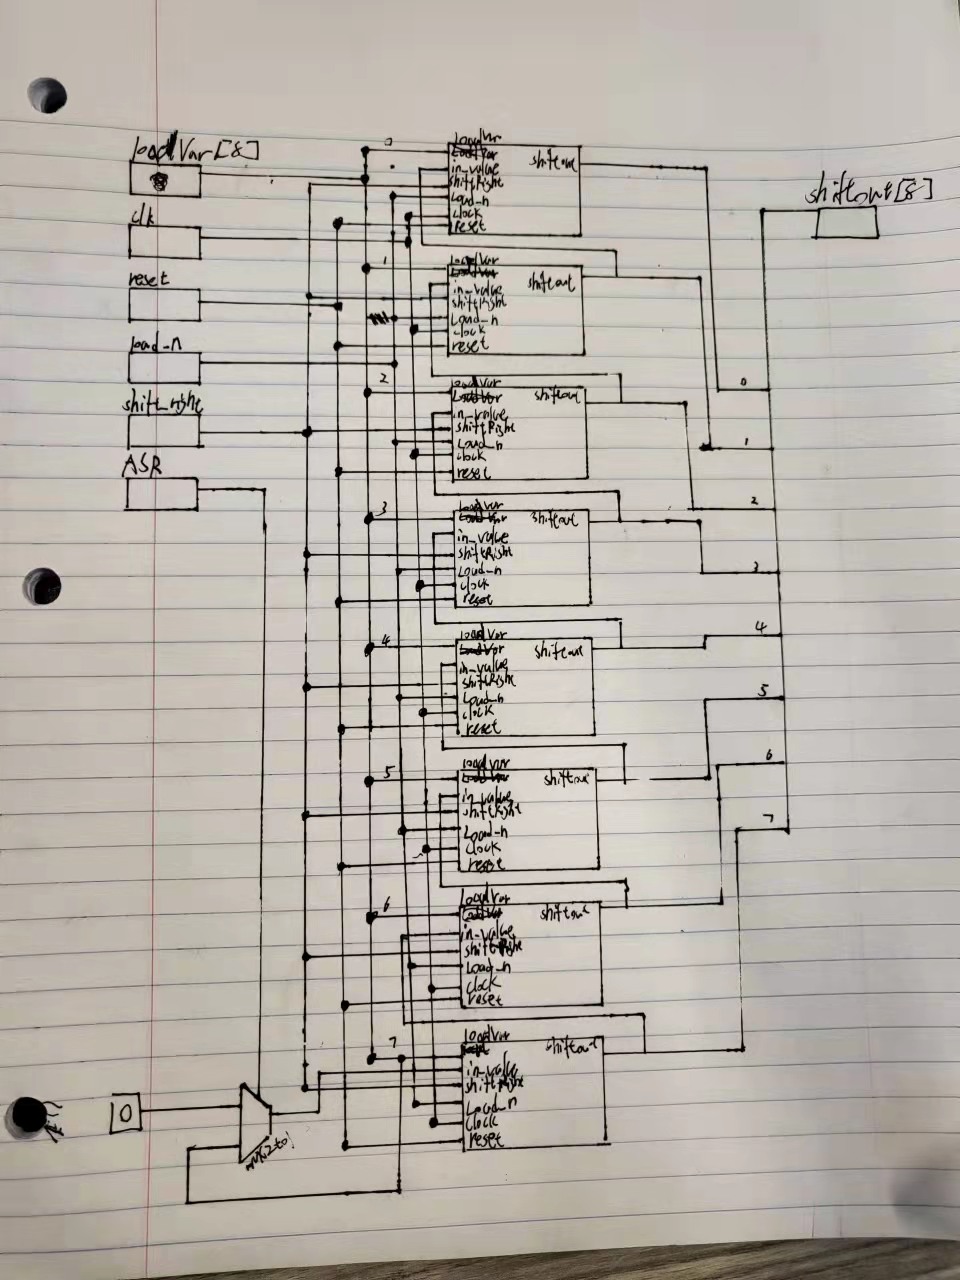 loadVar[8]
clk
reset
load_n
shift_right
ASR
0
mux2to1
0
loadVar
in_value
shiftRight
Load_n
clock
reset
shiftout
1
loadVar
in_value
shiftRight
Load_n
clock
reset
shiftout
2
loadVar
in_value
shiftRight
Load_n
clock
reset
shiftout
3
loadVar
in_value
shiftRight
Load_n
clock
reset
shiftout
4
loadVar
in_value
shiftRight
Load_n
clock
reset
shiftout
5
loadVar
in_value
shiftRight
Load_n
clock
reset
shiftout
6
loadVar
in_value
shiftRight
Load_n
clock
reset
shiftout
7
loadVar
in_value
shiftRight
Load_n
clock
reset
shiftout
shiftout[8]
0
1
2
3
4
5
6
7